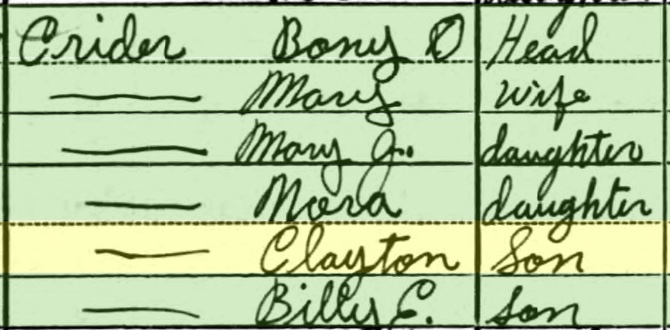 Crider Bony O Head
—— Mary wife
—— Mary J. daughter
—— Nora daughter
—— Clayton Son
—— Billy C. Son